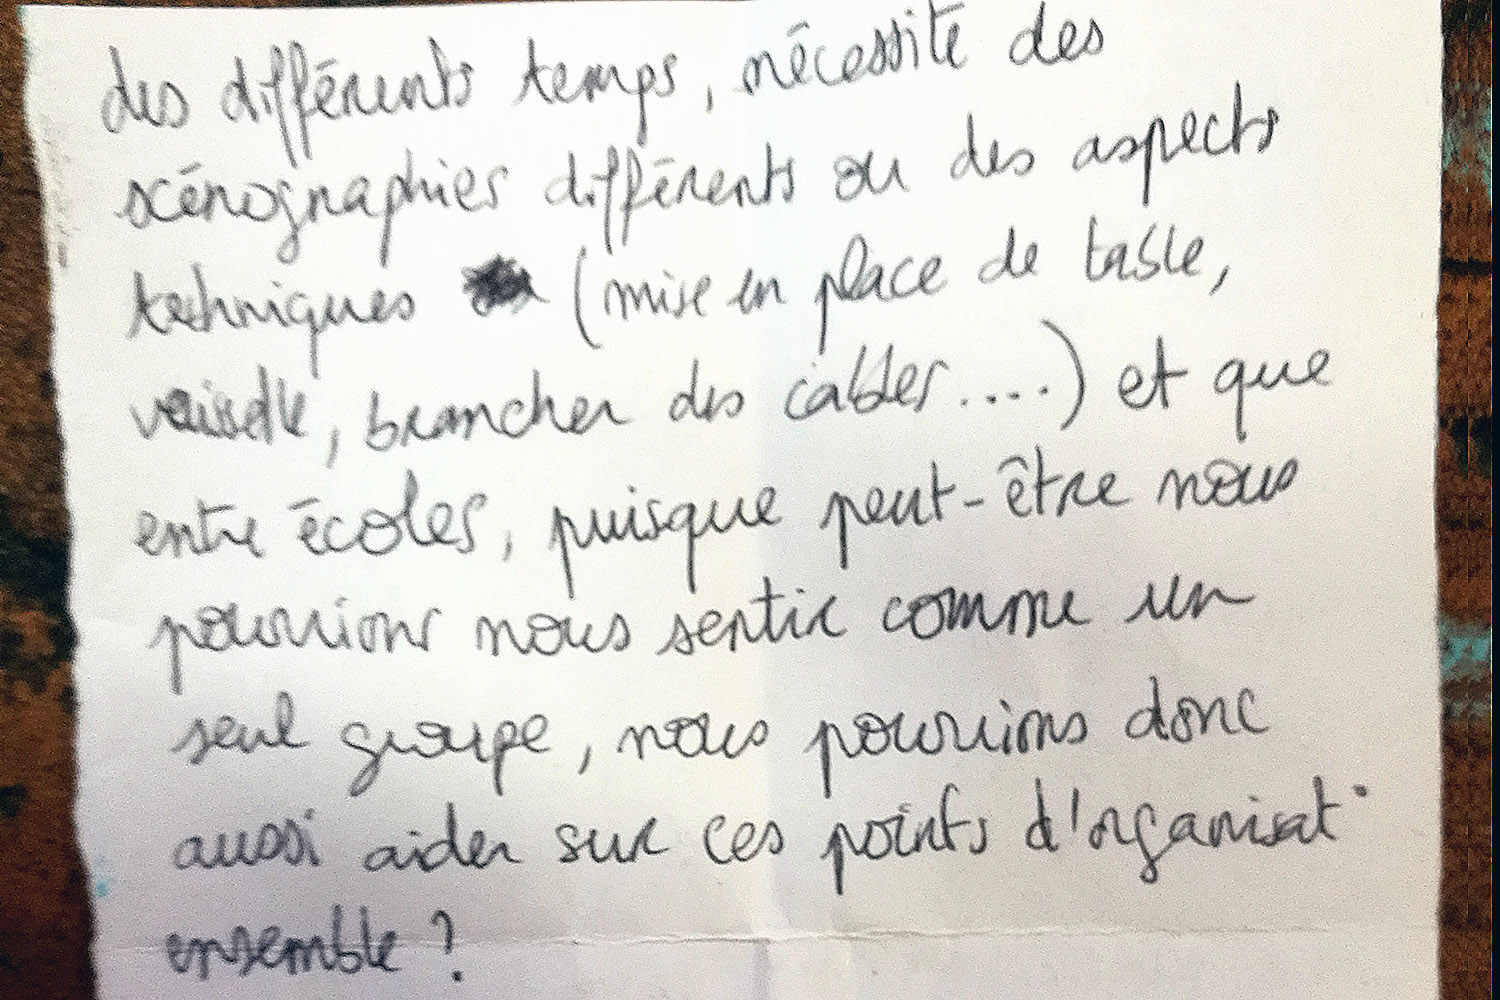 des différents temps, nécessite des
scénographies différents ou des aspects
techniques (mise en place de table,
vaisselle, brancher des cables....) et que
entre écoles, puisque peut-être nous
pourrions nous sentir comme un
seul groupe, nous pourrions donc
aussi aider sur ces points d'organisat°
ensemble ?